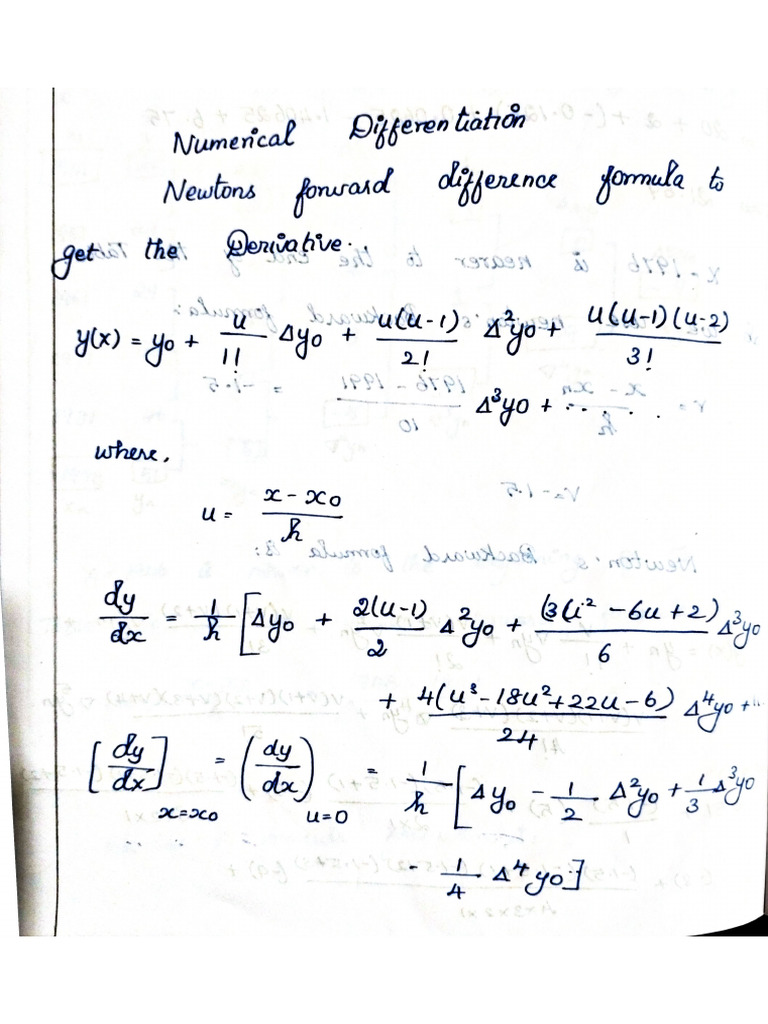 Numerical Differentiation
Newtons forward difference formula to
get the Derivative.
y(x) = y0 + u/1! Δy0 + u(u-1)/2! Δ²y0 + u(u-1)(u-2)/3!
Δ³y0 + . . . .
where,
u = x - x0/h
dy/dx = 1/h [Δy0 + 2(u-1)/2 Δ²y0 + (3(u² - 6u + 2)/6 Δ³y0
+ 4(u³ - 18u² + 22u - 6)/24 Δ⁴y0 + ..
[dy/dx] x=x0 = (dy/dx) u=0 = 1/h [Δy0 - 1/2 Δ²y0 + 1/3 Δ³y0
- 1/4 Δ⁴y0..]